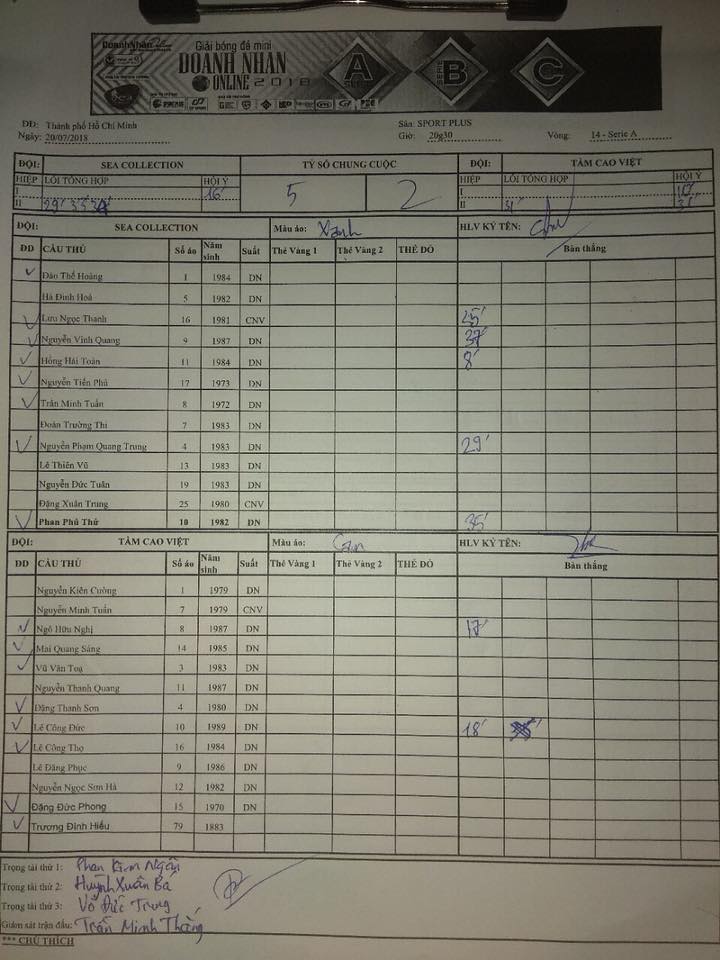 DoanhNhân
Giải bóng đá mini
DOANH NHÂN
ONLINE 2018
A
SERIE
B
C
DĐ: Thành phố Hồ Chí Minh Sân: SPORT PLUS
Ngày: 20/07/2018 Giờ: 20g30 Vòng: 14 - Serie A
ĐỘI: SEA COLLECTION TỶ SỐ CHUNG CUỘC ĐỘI: TẦM CAO VIỆT
HIỆP LỖI TỔNG HỢP HỘI Ý 5 2 HIỆP LỖI TỔNG HỢP HỘI Ý
I 16' I
II II 31'
ĐỘI: SEA COLLECTION Màu áo: Xanh HLV KÝ TÊN:
DD CẦU THỦ Số áo Năm sinh Suất Thẻ Vàng 1 Thẻ Vàng 2 THẺ ĐỎ Bàn thắng
Đào Thế Hoàng 1 1984 DN
Hà Đình Hoà 5 1982 DN
Lưu Ngọc Thanh 16 1981 CNV 25'
Nguyễn Vinh Quang 9 1987 DN 37'
Hồng Hải Toàn 11 1984 DN 8'
Nguyễn Tiến Phú 17 1973 DN
Trần Minh Tuấn 8 1972 DN
Đoàn Trường Thi 7 1983 DN
Nguyễn Phạm Quang Trung 4 1983 DN 29'
Lê Thiên Vũ 13 1983 DN
Nguyễn Đức Tuân 19 1983 DN
Đặng Xuân Trung 25 1980 CNV
Phan Phú Thứ 10 1982 DN 35'
ĐỘI: TẦM CAO VIỆT Màu áo: Cam HLV KÝ TÊN:
DD CẦU THỦ Số áo Năm sinh Suất Thẻ Vàng 1 Thẻ Vàng 2 THẺ ĐỎ Bàn thắng
Nguyễn Kiên Cường 1 1979 DN
Nguyễn Minh Tuấn 7 1979 CNV
Ngô Hữu Nghị 8 1987 DN 17'
Mai Quang Sáng 14 1985 DN
Vũ Văn Toạ 3 1983 DN
Nguyễn Thanh Quang 11 1987 DN
Đặng Thanh Sơn 4 1980 DN
Lê Công Đức 10 1989 DN 18'
Lê Công Thọ 16 1984 DN
Lê Đăng Phục 9 1986 DN
Nguyễn Ngọc Sơn Hà 12 1982 DN
Đặng Đức Phong 15 1970 DN
Trương Đình Hiếu 79 1883
Trọng tài thứ 1: Phan Kim Ngân
Trọng tài thứ 2: Huỳnh Xuân Bá
Trọng tài thứ 3: Võ Đức Trung
Giám sát trận đấu: Trần Minh Thắng
*** CHÚ THÍCH